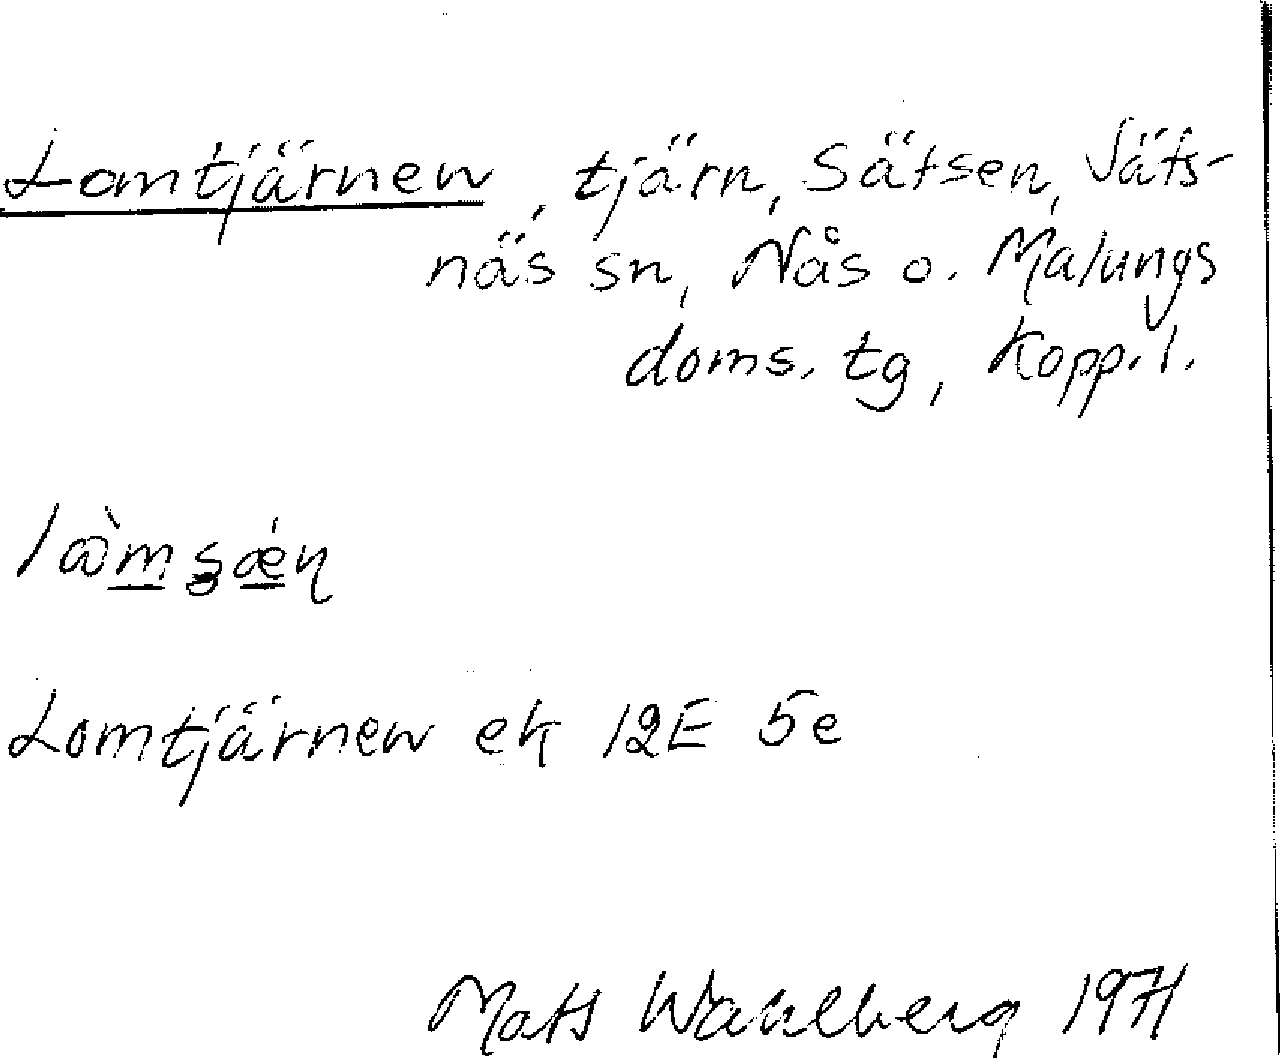 Lomtjärnen, tjärn, Sätsen, Jäts-
näs sn, Nås o. Malungs
doms. tg, Kopp. l.
Lomtjärnen ek 12E 5e
Mats Wahlberg 1971